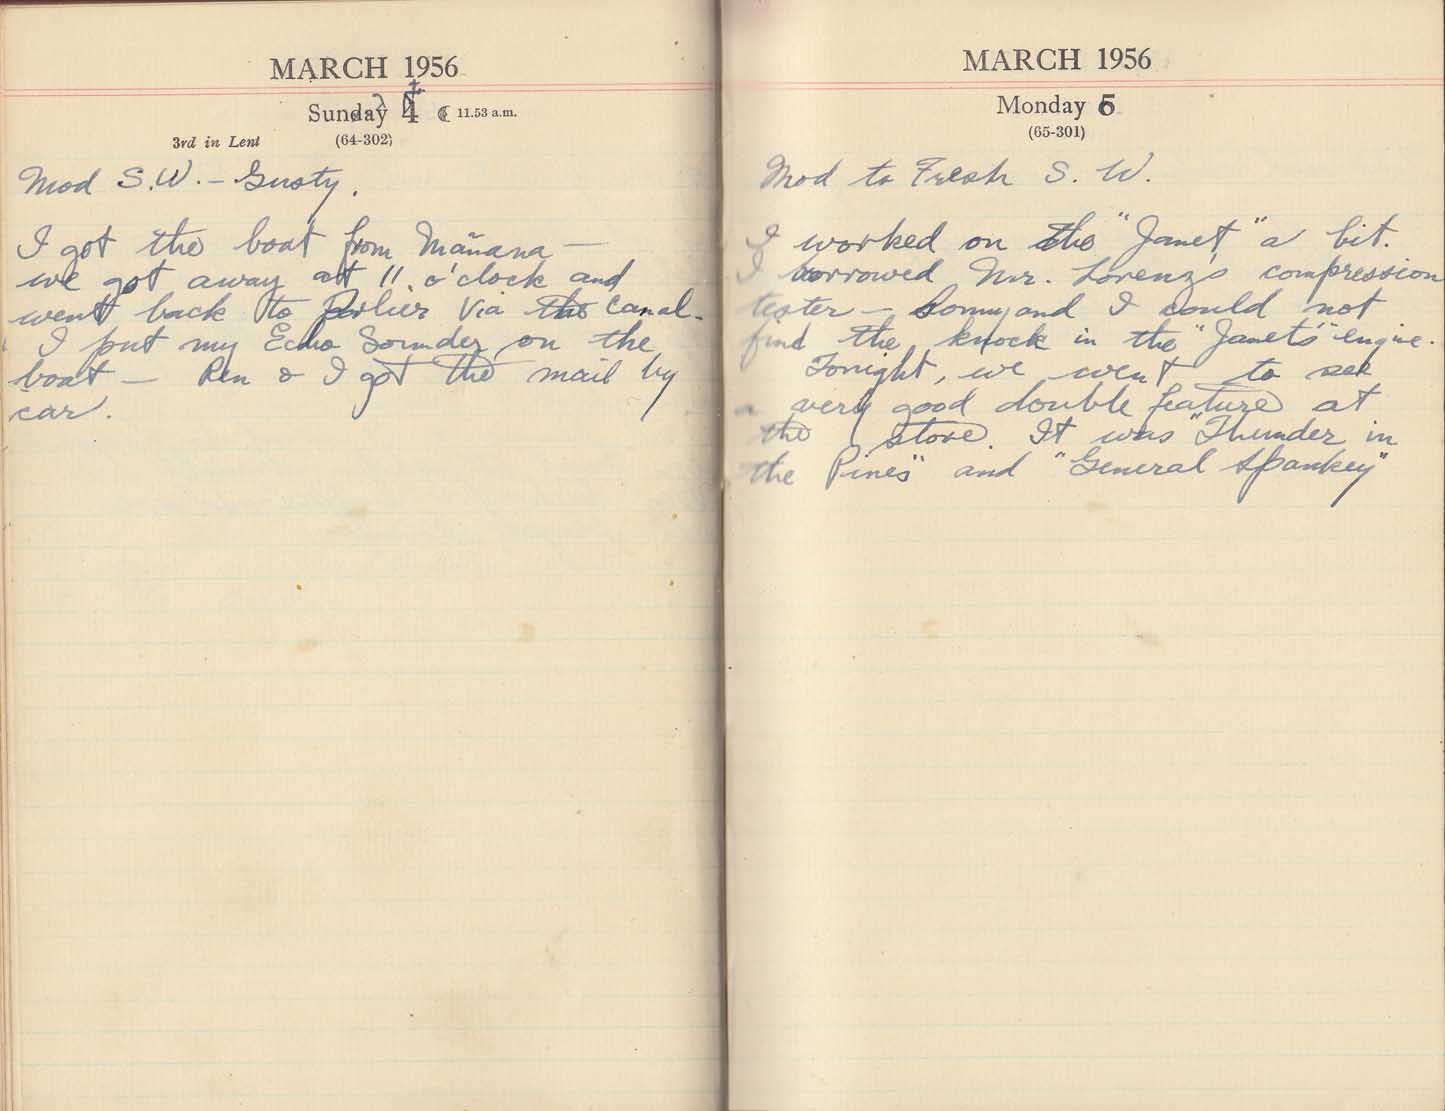 MARCH 1956
Sunday 4 ☾ 11.53 a.m.
3rd in Lent (64-302)
Mod S.W. - Gusty.
I got the boat from Mañana —
we got away at 11 o'clock and
went back to Via the canal-
I put my Echo Sounder on the
boat — Ren & I got the mail by
car.
MARCH 1956
Monday 5
(65-301)
Mod to Fresh S. W.
I worked on the "Janet" a bit.
I borrowed Mr. Lorenz's compression
tester — Sonny and I could not
find the knock in the "Janets'" engine.
Tonight, we went to see
a very good double feature at
the store. It was "Thunder in
the Pines" and "General Spankey"